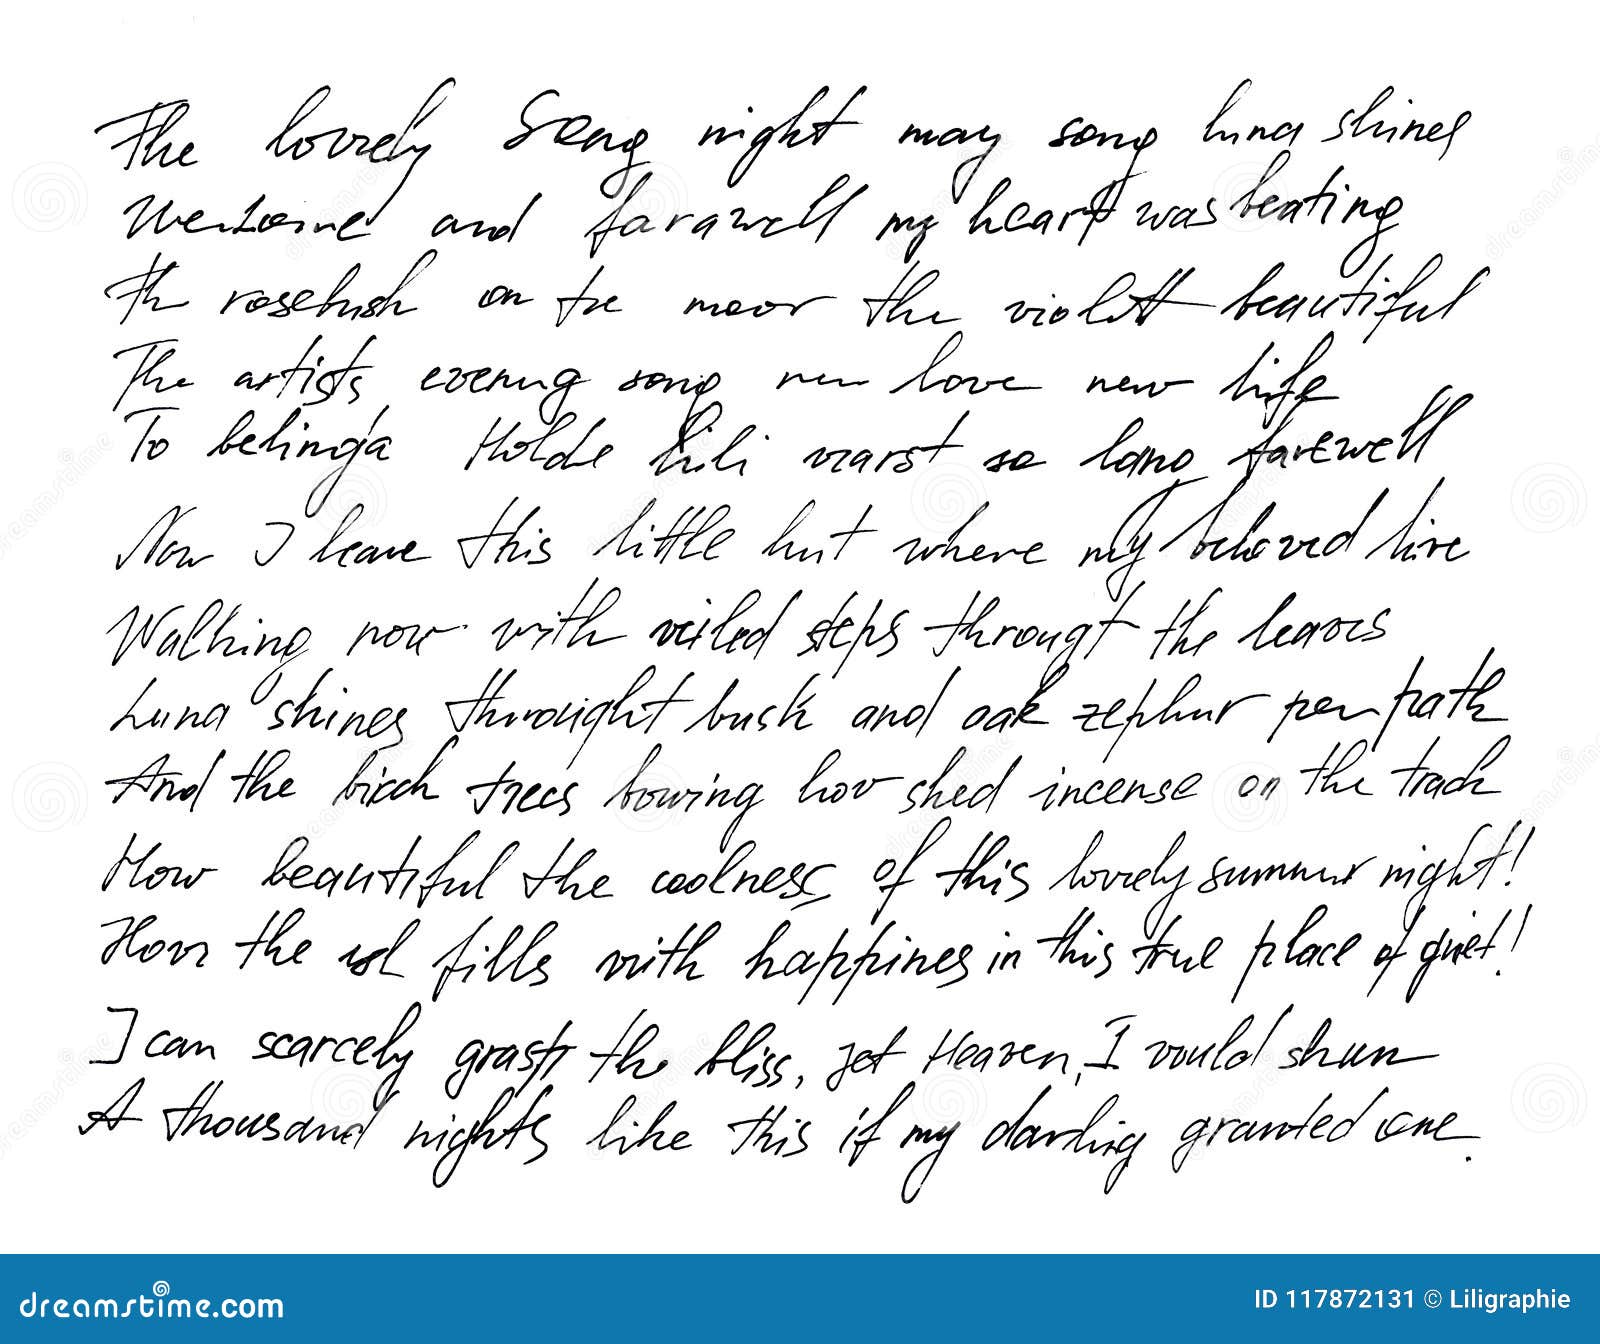 The lovely Song night may song luna shines
Welcome and farawell my heart was beating
Th rosebush on the moor the violett beautiful
The artists evening song new love new life
To belinda Holde Lili warst so lang farewell
Now I leave this little hut where my beloved live
Walking now with veiled steps througt the leaves
Luna shines throught busk and oak zephur path
And the birch trees bowing how shed incense on the track
How beautiful the coolness of this lovely summer night!
How the fills with happines in this true place of quiet!
I can scarcely grasp the bliss, jet Heaven, I would shun
A thousand nights like this if my darling granted one.
dreamstime.com
ID 117872131 © Liligraphie